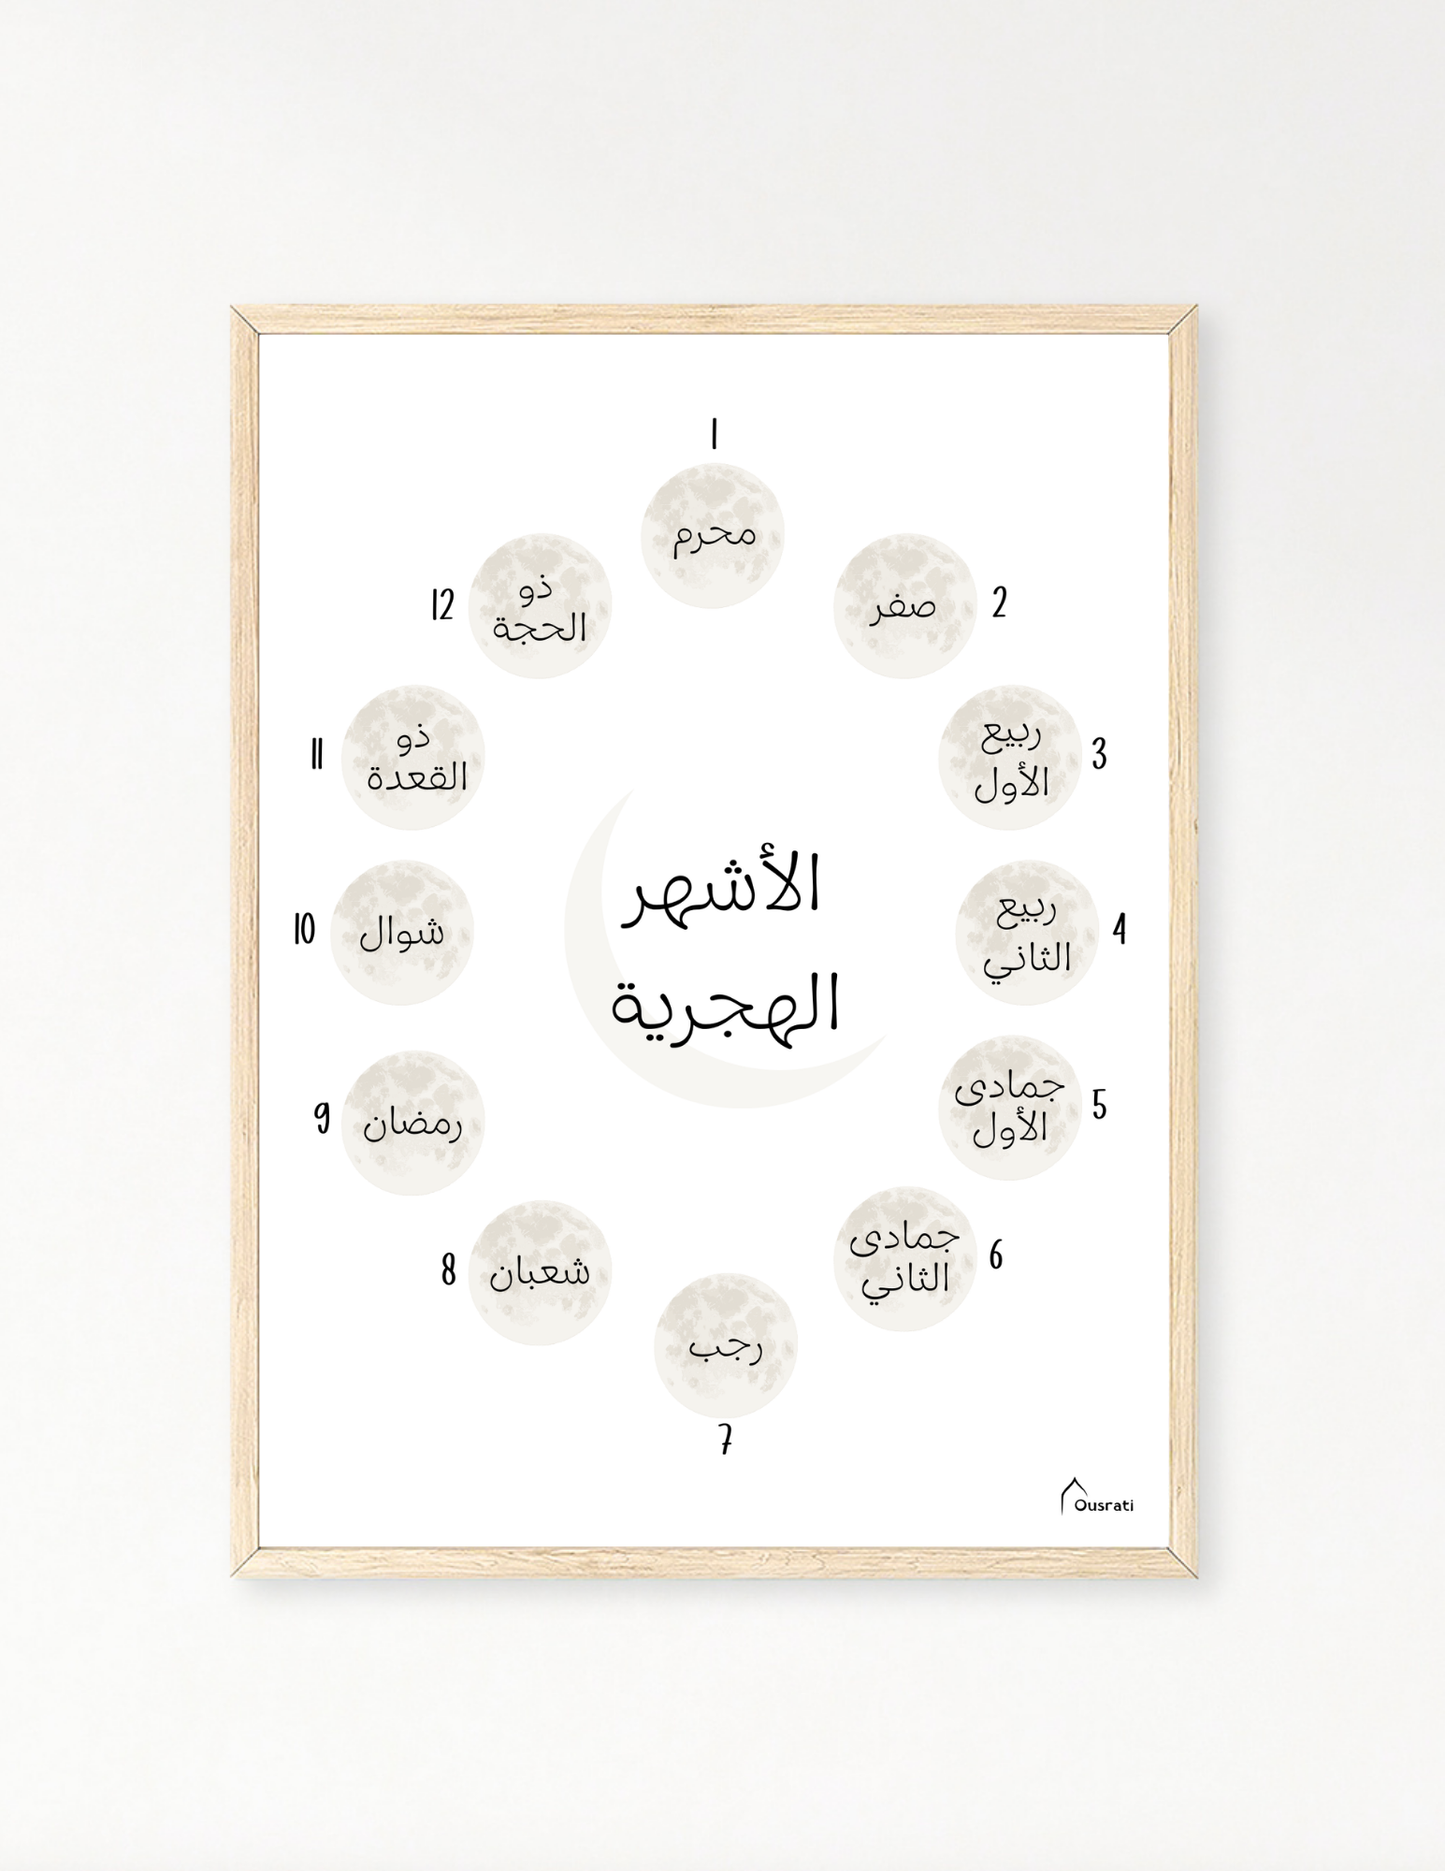 الأشهر
الهجرية
1
محرم
2
صفر
3
ربيع
الأول
4
ربيع
الثاني
5
جمادى
الأول
6
جمادى
الثاني
7
رجب
8
شعبان
9
رمضان
10
شوال
11
ذو
القعدة
12
ذو
الحجة
Ousrati